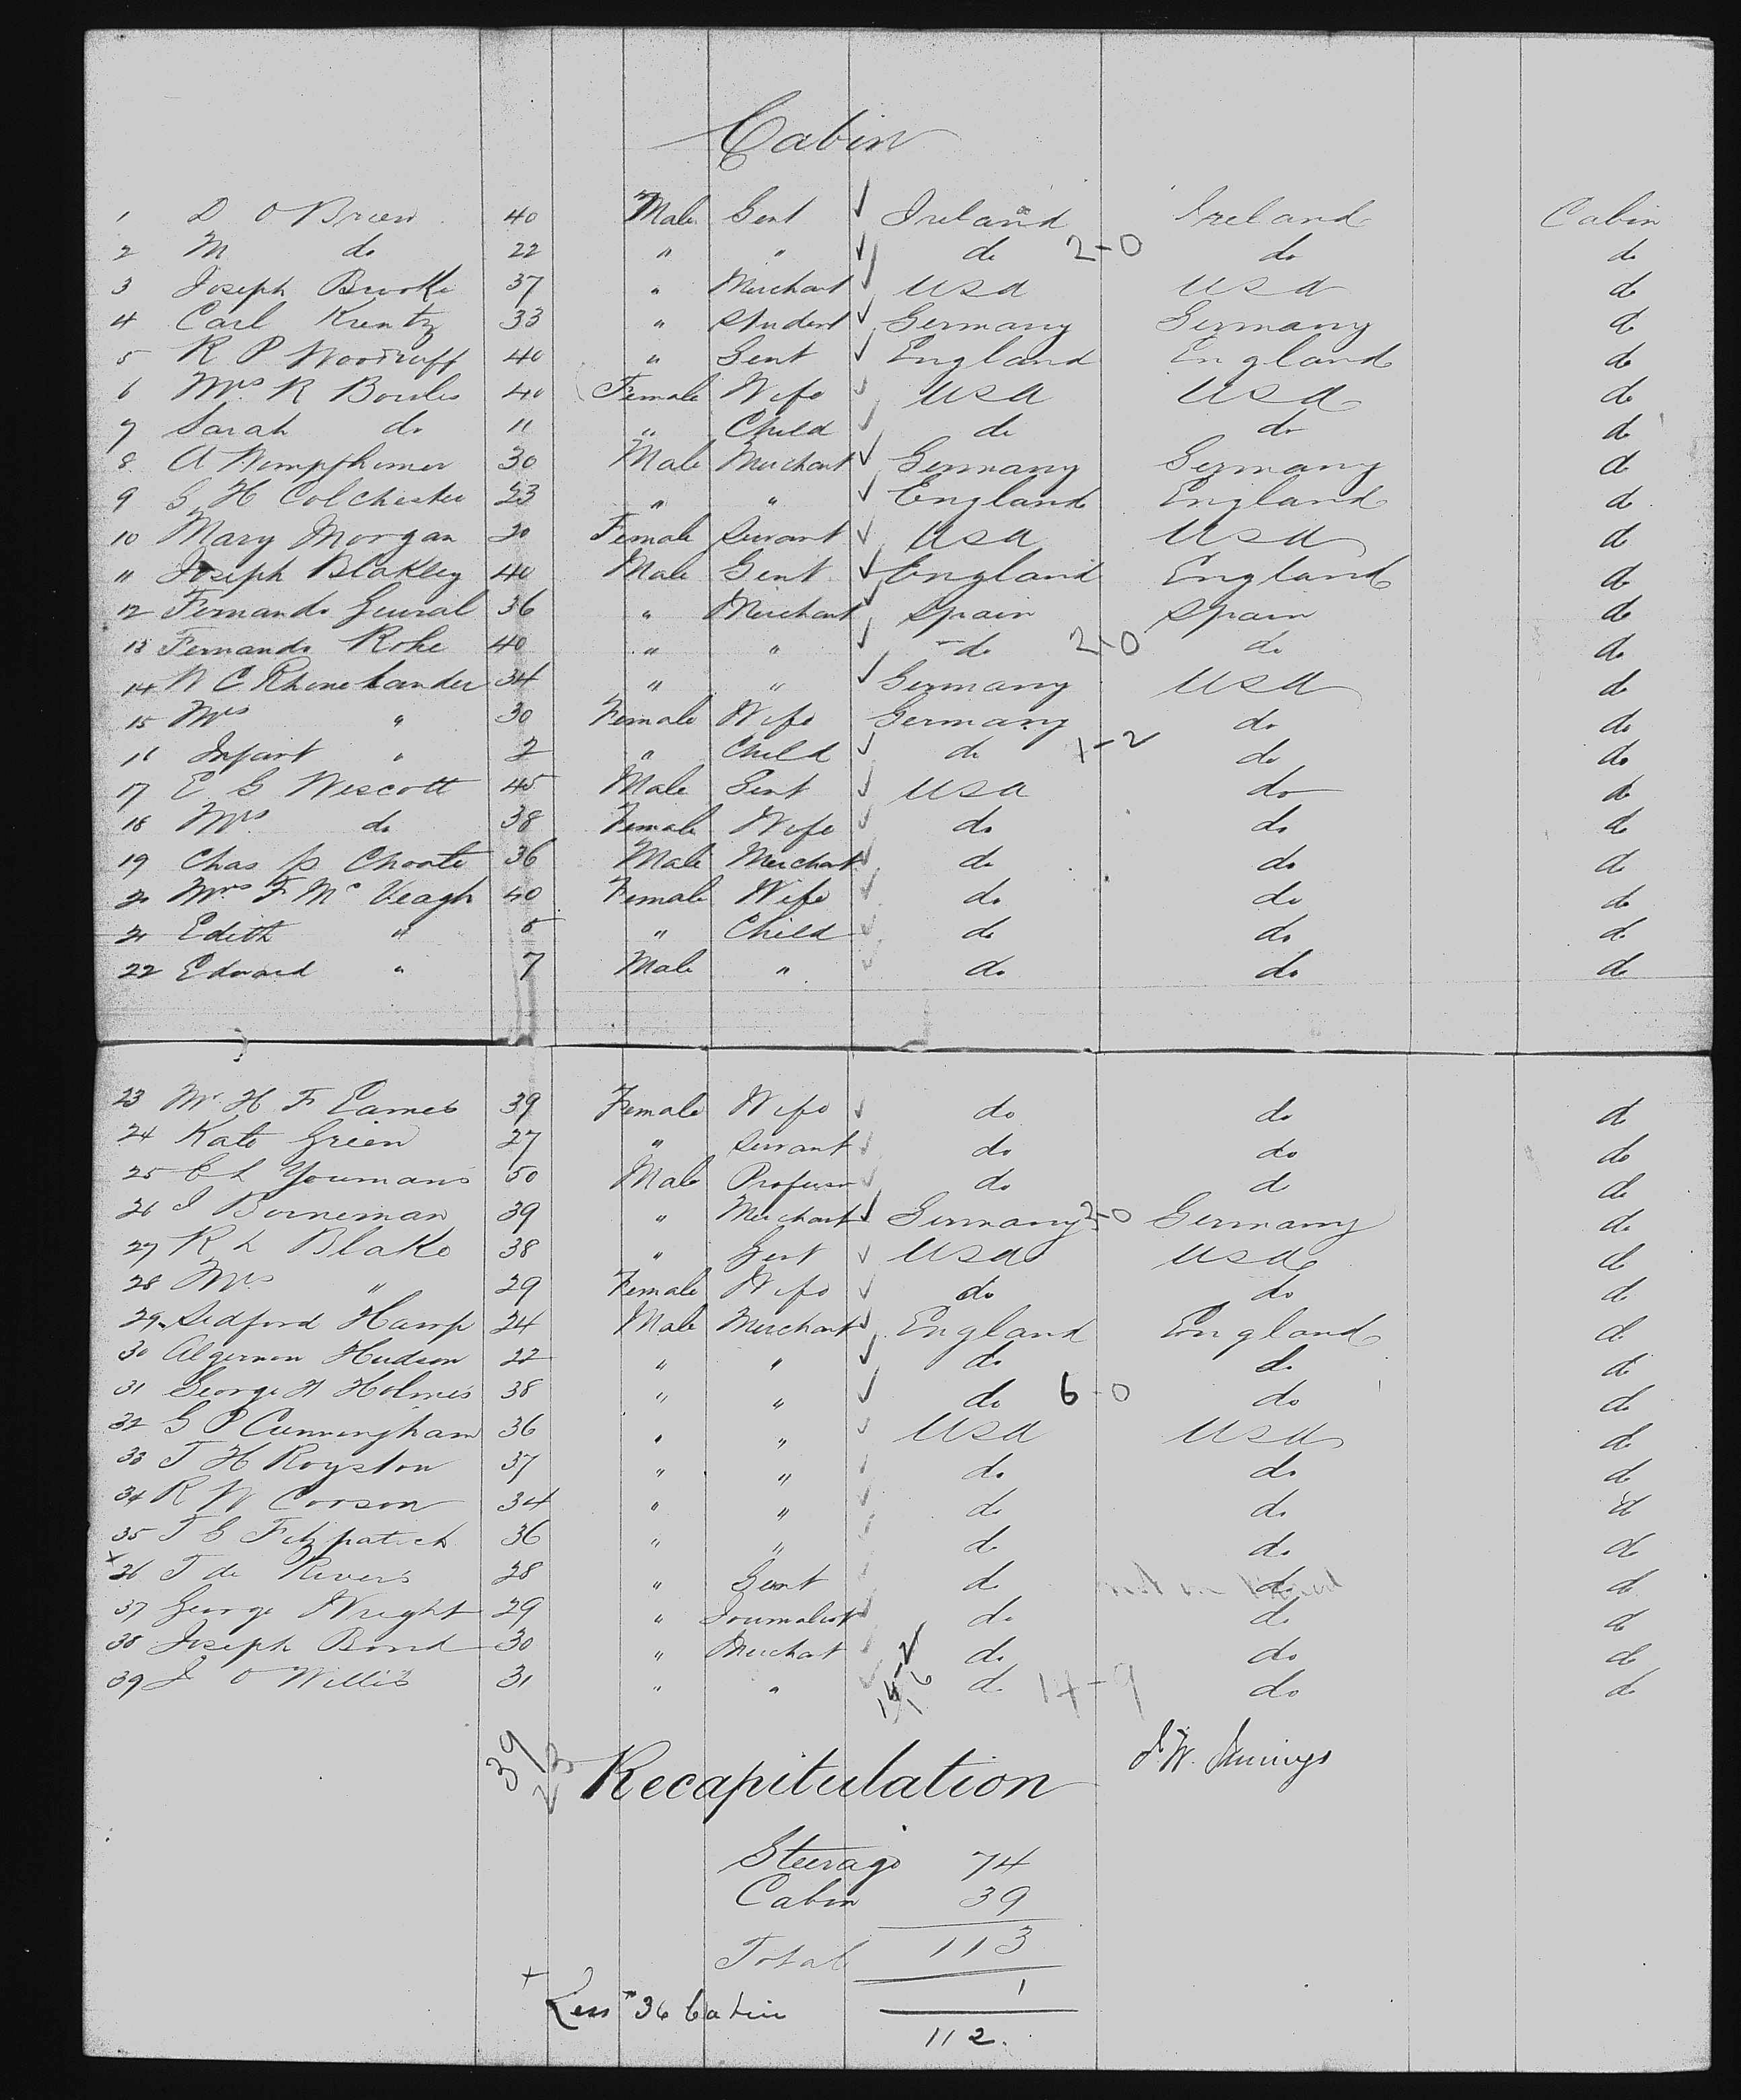 Cabin
1 D O Brien 40 Male Gent ✓ Ireland Ireland Cabin
2 M do 22 " " ✓ do 2-0 do do
3 Joseph Brooke 37 " Merchant ✓ USA USA do
4 Carl Kuntz 33 " Student ✓ Germany Germany do
5 R P Woodruff 40 " Gent ✓ England England do
6 Mrs R Bowles 40 Female Wife ✓ USA USA do
7 Sarah do 11 " Child ✓ do do do
8 A 30 Male Merchant ✓ Germany Germany do
9 G H Colchester 23 " " ✓ England England do
10 Mary Morgan 20 Female Servant ✓ USA USA do
11 Joseph Blakley 40 Male Gent ✓ England England do
12 Fernando 36 " Merchant ✓ Spain Spain do
13 Fernando Rohe 40 " " ✓ do 2-0 do do
14 W C Rhinelander 34 " " ✓ Germany USA do
15 Mrs " 30 Female Wife Germany do do
16 Infant " 2 " Child ✓ do 1-2 do do
17 E G Wescott 45 Male Gent ✓ USA do do
18 Mrs do 38 Female Wife ✓ do do do
19 Chas P Choate 36 Male Merchant ✓ do do do
20 Mrs F Mc Veagh 40 Female Wife ✓ do do do
21 Edith " 5 " Child ✓ do do do
22 Edward " 7 Male " ✓ do do do
23 Mr H F Eames 39 Female Wife ✓ do do do
24 Kate Green 27 " Servant ✓ do do do
25 E L Youmans 50 Male Professor ✓ do do do
26 I Borneman 39 " Merchant ✓ Germany 2-0 Germany do
27 R L Blake 38 " Gent ✓ USA USA do
28 Mrs " 29 Female Wife ✓ do do do
29 Sedford Hamp 24 Male Merchant ✓ England England do
30 Algernon Hudson 22 " " ✓ do do do
31 George H Holmes 38 " " ✓ do 6-0 do do
32 G P Cunningham 36 " " ✓ USA USA do
33 T H Royston 37 " " ✓ do do do
34 R W Corson 34 " " ✓ do do do
35 T G Fitzpatrick 36 " " ✓ do do do
x 36 T de Rivers 28 " Gent ✓ do do do
37 George Wright 29 " Journalist ✓ do do do
38 Joseph Bond 30 " Merchant ✓ do do do
39 J O Willis 31 " " ✓ do 14-9 do do
39
23
Recapitulation
Steerage 74
Cabin 39
Total 113
1
+ Less 36 Cabin
112.